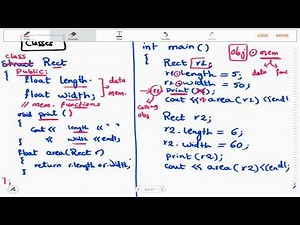 Classes
class
Struct Rect
{ Public:
float length.
float width;
data
mem.
// mem. functions
void print ( )
{ cout << length << " "
<< width << endl;
}
float area(Rect r)
{
return r.length * r.width;
}
};
int main ( )
{
Rect r1;
r1.length = 5;
r1.width = 50;
print (r1);
cout << area(r1) << endl;
obj . mem
data
calling
obj
Rect r2;
r2.length = 6;
r2.width = 60;
print(r2);
cout << area(r2) << endl;